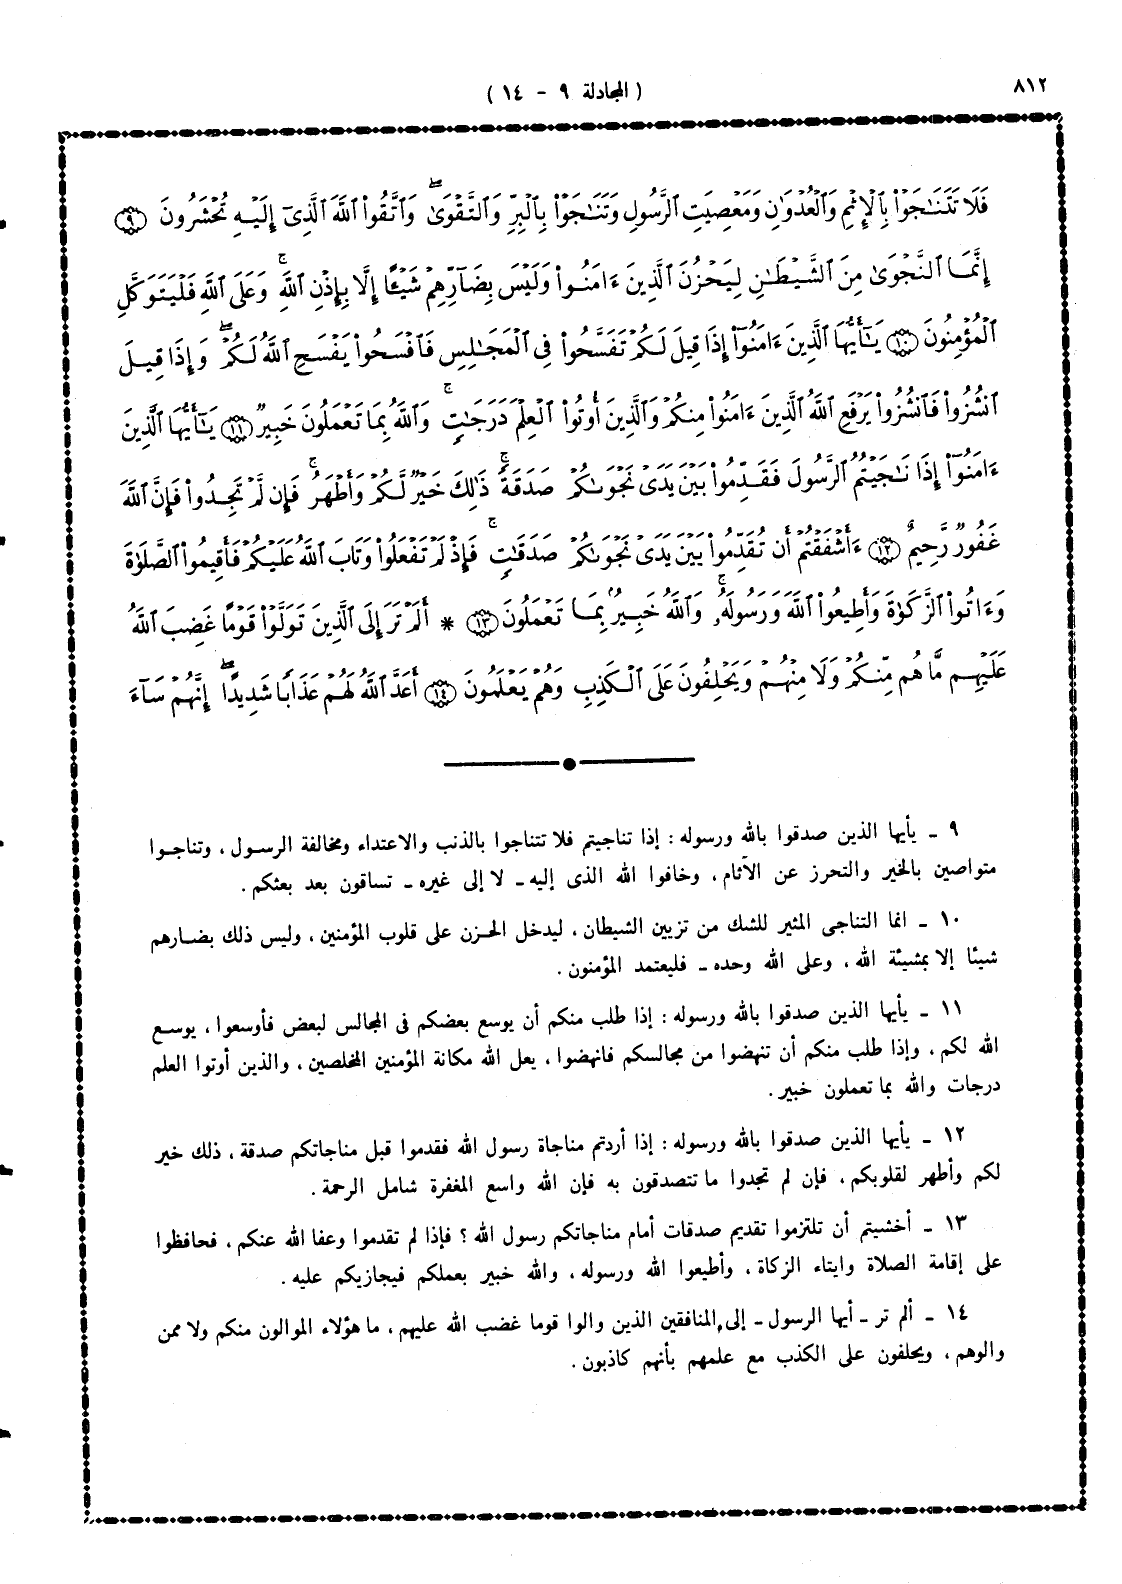 ٨١٢
( المجادلة ٩ - ١٤ )
فَلَا تَتَنَـٰجَوْا۟ بِٱلْإِثْمِ وَٱلْعُدْوَٰنِ وَمَعْصِيَتِ ٱلرَّسُولِ وَتَنَـٰجَوْا۟ بِٱلْبِرِّ وَٱلتَّقْوَىٰ ۖ وَٱتَّقُوا۟ ٱللَّهَ ٱلَّذِىٓ إِلَيْهِ تُحْشَرُونَ ٩
إِنَّمَا ٱلنَّجْوَىٰ مِنَ ٱلشَّيْطَـٰنِ لِيَحْزُنَ ٱلَّذِينَ ءَامَنُوا۟ وَلَيْسَ بِضَآرِّهِمْ شَيْـًٔا إِلَّا بِإِذْنِ ٱللَّهِ ۚ وَعَلَى ٱللَّهِ فَلْيَتَوَكَّلِ
ٱلْمُؤْمِنُونَ ١٠ يَـٰٓأَيُّهَا ٱلَّذِينَ ءَامَنُوٓا۟ إِذَا قِيلَ لَكُمْ تَفَسَّحُوا۟ فِى ٱلْمَجَـٰلِسِ فَٱفْسَحُوا۟ يَفْسَحِ ٱللَّهُ لَكُمْ ۖ وَإِذَا قِيلَ
ٱنشُزُوا۟ فَٱنشُزُوا۟ يَرْفَعِ ٱللَّهُ ٱلَّذِينَ ءَامَنُوا۟ مِنكُمْ وَٱلَّذِينَ أُوتُوا۟ ٱلْعِلْمَ دَرَجَـٰتٍ ۚ وَٱللَّهُ بِمَا تَعْمَلُونَ خَبِيرٌ ١١ يَـٰٓأَيُّهَا ٱلَّذِينَ
ءَامَنُوٓا۟ إِذَا نَـٰجَيْتُمُ ٱلرَّسُولَ فَقَدِّمُوا۟ بَيْنَ يَدَىْ نَجْوَىٰكُمْ صَدَقَةً ۚ ذَٰلِكَ خَيْرٌ لَّكُمْ وَأَطْهَرُ ۚ فَإِن لَّمْ تَجِدُوا۟ فَإِنَّ ٱللَّهَ
غَفُورٌ رَّحِيمٌ ١٢ ءَأَشْفَقْتُمْ أَن تُقَدِّمُوا۟ بَيْنَ يَدَىْ نَجْوَىٰكُمْ صَدَقَـٰتٍ ۚ فَإِذْ لَمْ تَفْعَلُوا۟ وَتَابَ ٱللَّهُ عَلَيْكُمْ فَأَقِيمُوا۟ ٱلصَّلَوٰةَ
وَءَاتُوا۟ ٱلزَّكَوٰةَ وَأَطِيعُوا۟ ٱللَّهَ وَرَسُولَهُۥ ۚ وَٱللَّهُ خَبِيرٌۢ بِمَا تَعْمَلُونَ ١٣ * أَلَمْ تَرَ إِلَى ٱلَّذِينَ تَوَلَّوْا۟ قَوْمًا غَضِبَ ٱللَّهُ
عَلَيْهِم مَّا هُم مِّنكُمْ وَلَا مِنْهُمْ وَيَحْلِفُونَ عَلَى ٱلْكَذِبِ وَهُمْ يَعْلَمُونَ ١٤ أَعَدَّ ٱللَّهُ لَهُمْ عَذَابًا شَدِيدًا ۖ إِنَّهُمْ سَآءَ
٩ ـ يأيها الذين صدقوا بالله ورسوله : إذا تناجيتم فلا تتناجوا بالذنب والاعتداء ومخالفة الرسول ، وتناجوا
متواصين بالخير والتحرز عن الآثام ، وخافوا الله الذى إليه ـ لا إلى غيره ـ تساقون بعد بعثكم .
١٠ ـ انما التناجى المثير للشك من تزيين الشيطان ، ليدخل الحزن على قلوب المؤمنين ، وليس ذلك بضارهم
شيئا إلا بمشيئة الله ، وعلى الله وحده ـ فليعتمد المؤمنون .
١١ ـ يأيها الذين صدقوا بالله ورسوله : إذا طلب منكم أن يوسع بعضكم فى المجالس لبعض فأوسعوا ، يوسع
الله لكم ، وإذا طلب منكم أن تنهضوا من مجالسكم فانهضوا ، يعل الله مكانة المؤمنين المخلصين ، والذين أوتوا العلم
درجات والله بما تعملون خبير .
١٢ ـ يأيها الذين صدقوا بالله ورسوله : إذا أردتم مناجاة رسول الله فقدموا قبل مناجاتكم صدقة ، ذلك خير
لكم وأطهر لقلوبكم ، فإن لم تجدوا ما تتصدقون به فإن الله واسع المغفرة شامل الرحمة .
١٣ ـ أخشيتم أن تلتزموا تقديم صدقات أمام مناجاتكم رسول الله ؟ فإذا لم تقدموا وعفا الله عنكم ، فحافظوا
على إقامة الصلاة وايتاء الزكاة ، وأطيعوا الله ورسوله ، والله خبير بعملكم فيجازيكم عليه .
١٤ ـ ألم تر ـ أيها الرسول ـ إلى المنافقين الذين والوا قوما غضب الله عليهم ، ما هؤلاء الموالون منكم ولا ممن
والوهم ، ويحلفون على الكذب مع علمهم بأنهم كاذبون .